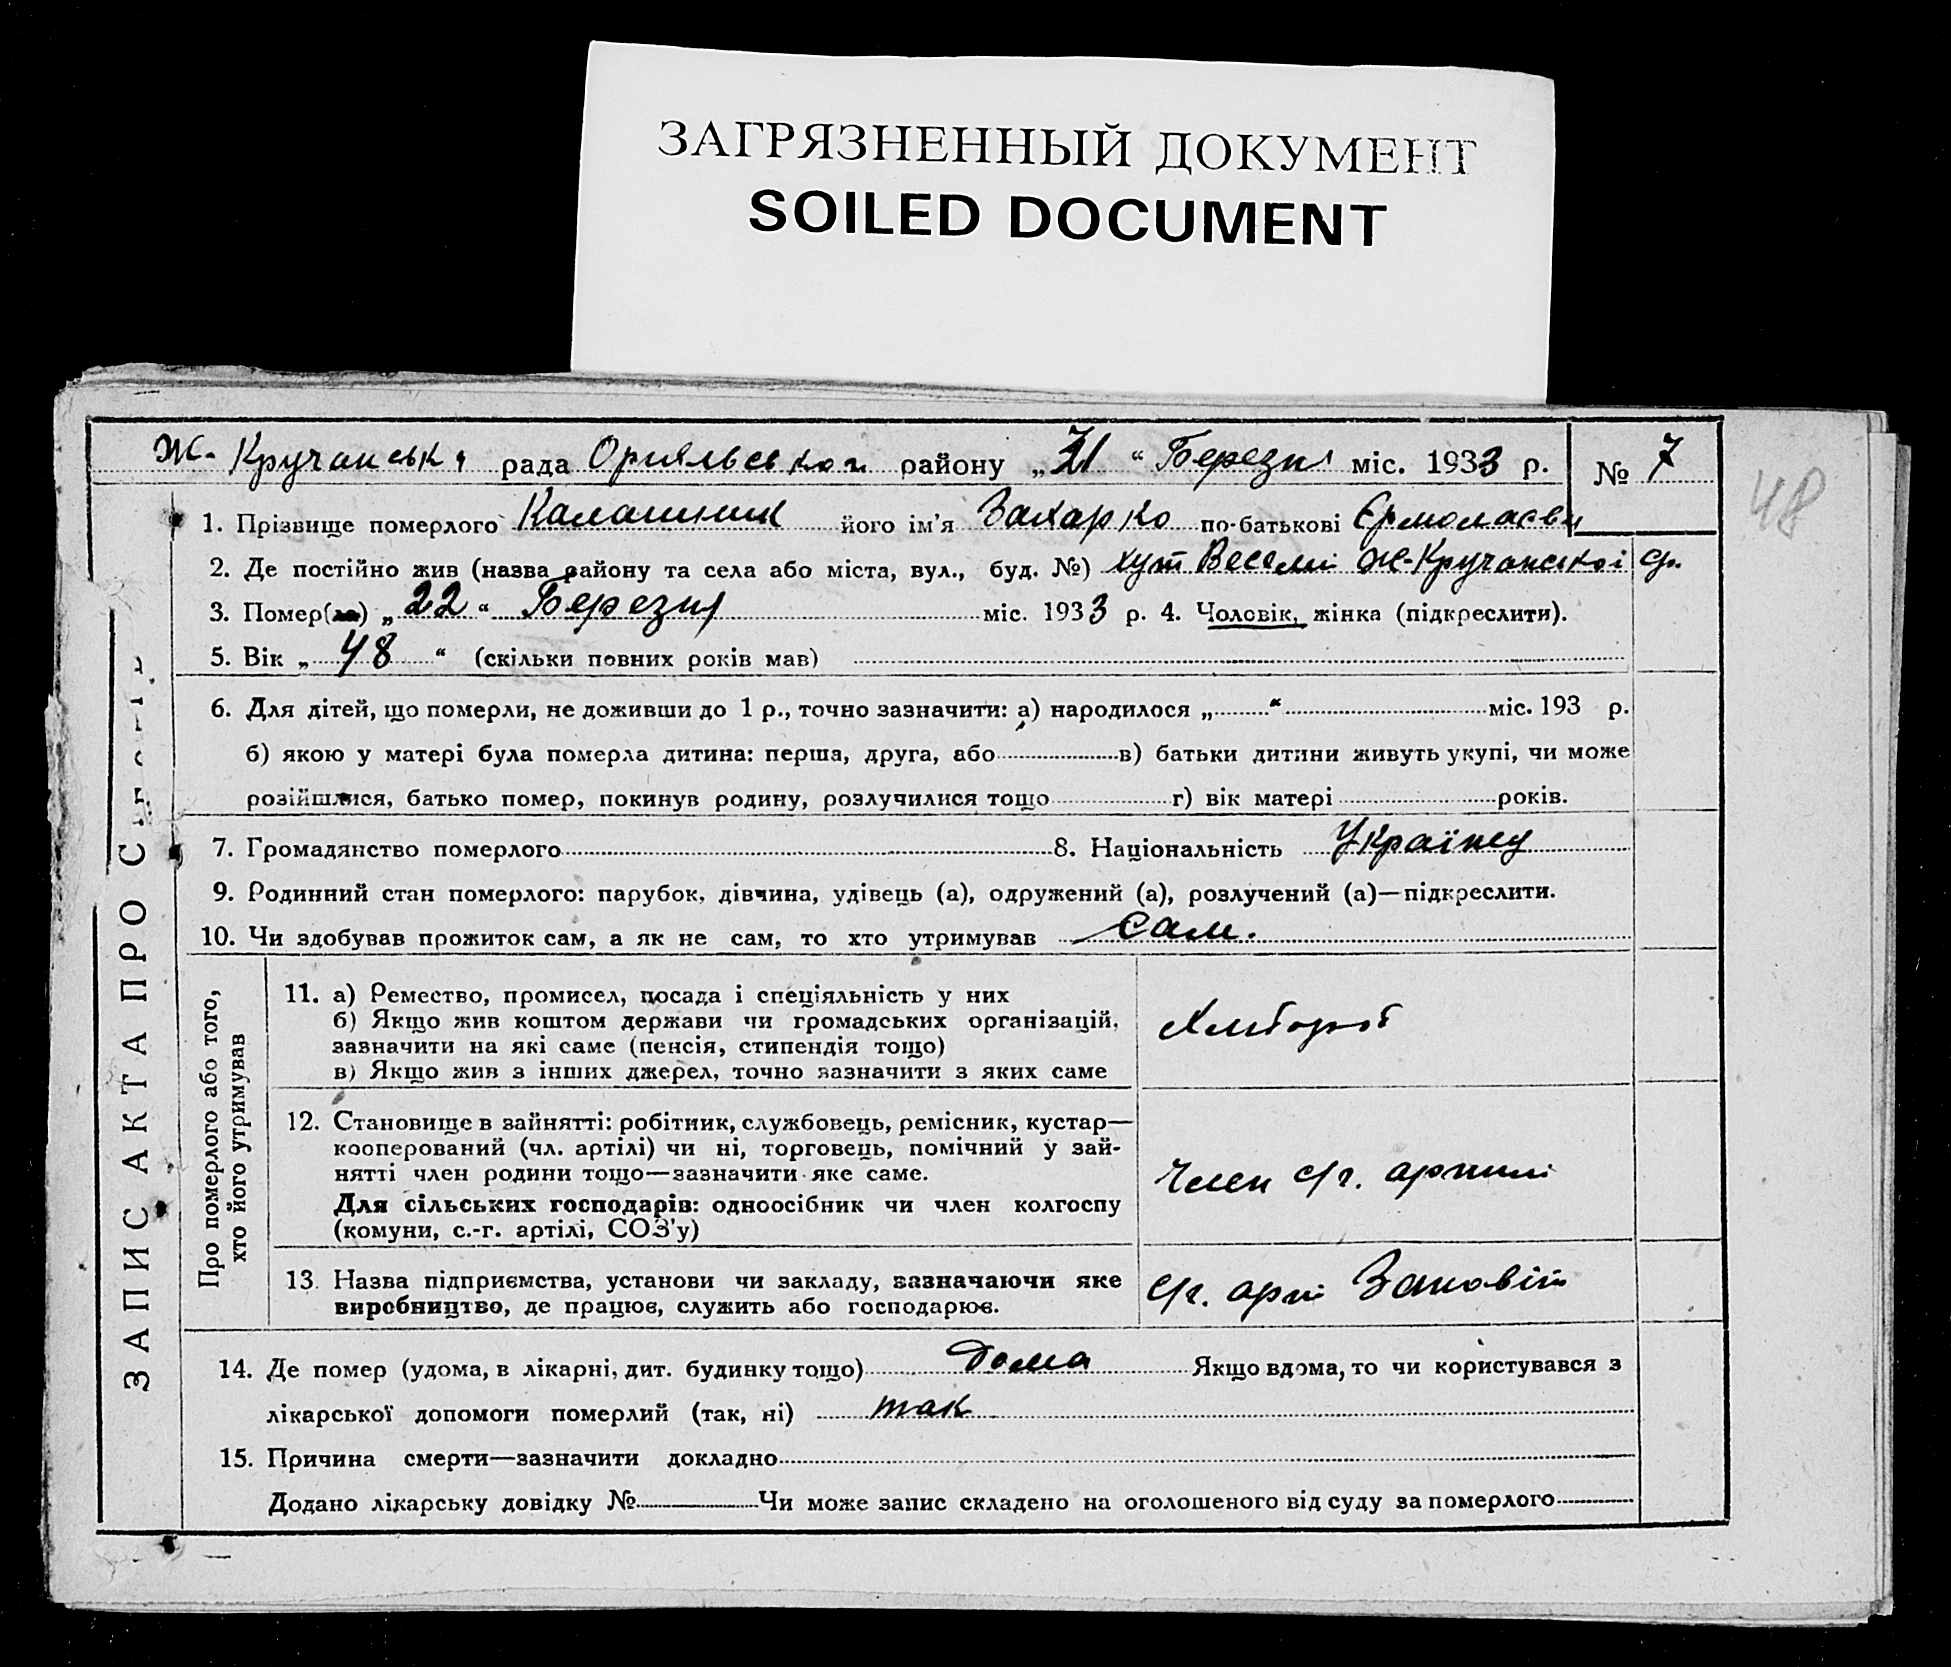 ЗАГРЯЗНЕННЫЙ ДОКУМЕНТ
SOILED DOCUMENT
Ж-Кручанська рада Орияльської району „31“ Березня міс. 1933 р. № 7
48
1. Прізвище померлого Калашник його ім'я Захарко по-батькові Єрмолаєви
2. Де постійно жив (назва району та села або міста, вул., буд. №) хут Веселий Ж-Кручанської с/р.
3. Помер(ла) „22“ Березня міс. 1933 р. 4. Чоловік, жінка (підкреслити).
5. Вік „48“ (скільки повних років мав)
6. Для дітей, що померли, не доживши до 1 р., точно зазначити: а) народилося „ “ міс. 193 р.
б) якою у матері була померла дитина: перша, друга, або в) батьки дитини живуть укупі, чи може
розійшлися, батько помер, покинув родину, розлучилися тощо г) вік матері років.
7. Громадянство померлого 8. Національність Українец
9. Родинний стан померлого: парубок, дівчина, удівець (а), одружений (а), розлучений (а)—підкреслити.
10. Чи здобував прожиток сам, а як не сам, то хто утримував сам.
ЗАПИС АКТА ПРО С
Про померлого або того,
хто його утримував
11. а) Ремество, промисел, посада і спеціяльність у них
б) Якщо жив коштом держави чи громадських організацій,
зазначити на які саме (пенсія, стипендія тощо)
в) Якщо жив з інших джерел, точно зазначити з яких саме
Хлибороб
12. Становище в зайнятті: робітник, службовець, ремісник, кустар—
кооперований (чл. артілі) чи ні, торговець, помічний у зай-
нятті член родини тощо—зазначити яке саме.
Для сільських господарів: одноосібник чи член колгоспу
(комуни, с.-г. артілі, СОЗ'у)
Член с/г. артилі
13. Назва підприємства, установи чи закладу, зазначаючи яке
виробництво, де працює, служить або господарює.
с/г. арт Заповіт
14. Де помер (удома, в лікарні, дит. будинку тощо) Дома Якщо вдома, то чи користувався з
лікарської допомоги померлий (так, ні) так
15. Причина смерти—зазначити докладно
Додано лікарську довідку № Чи може запис складено на оголошеного від суду за померлого